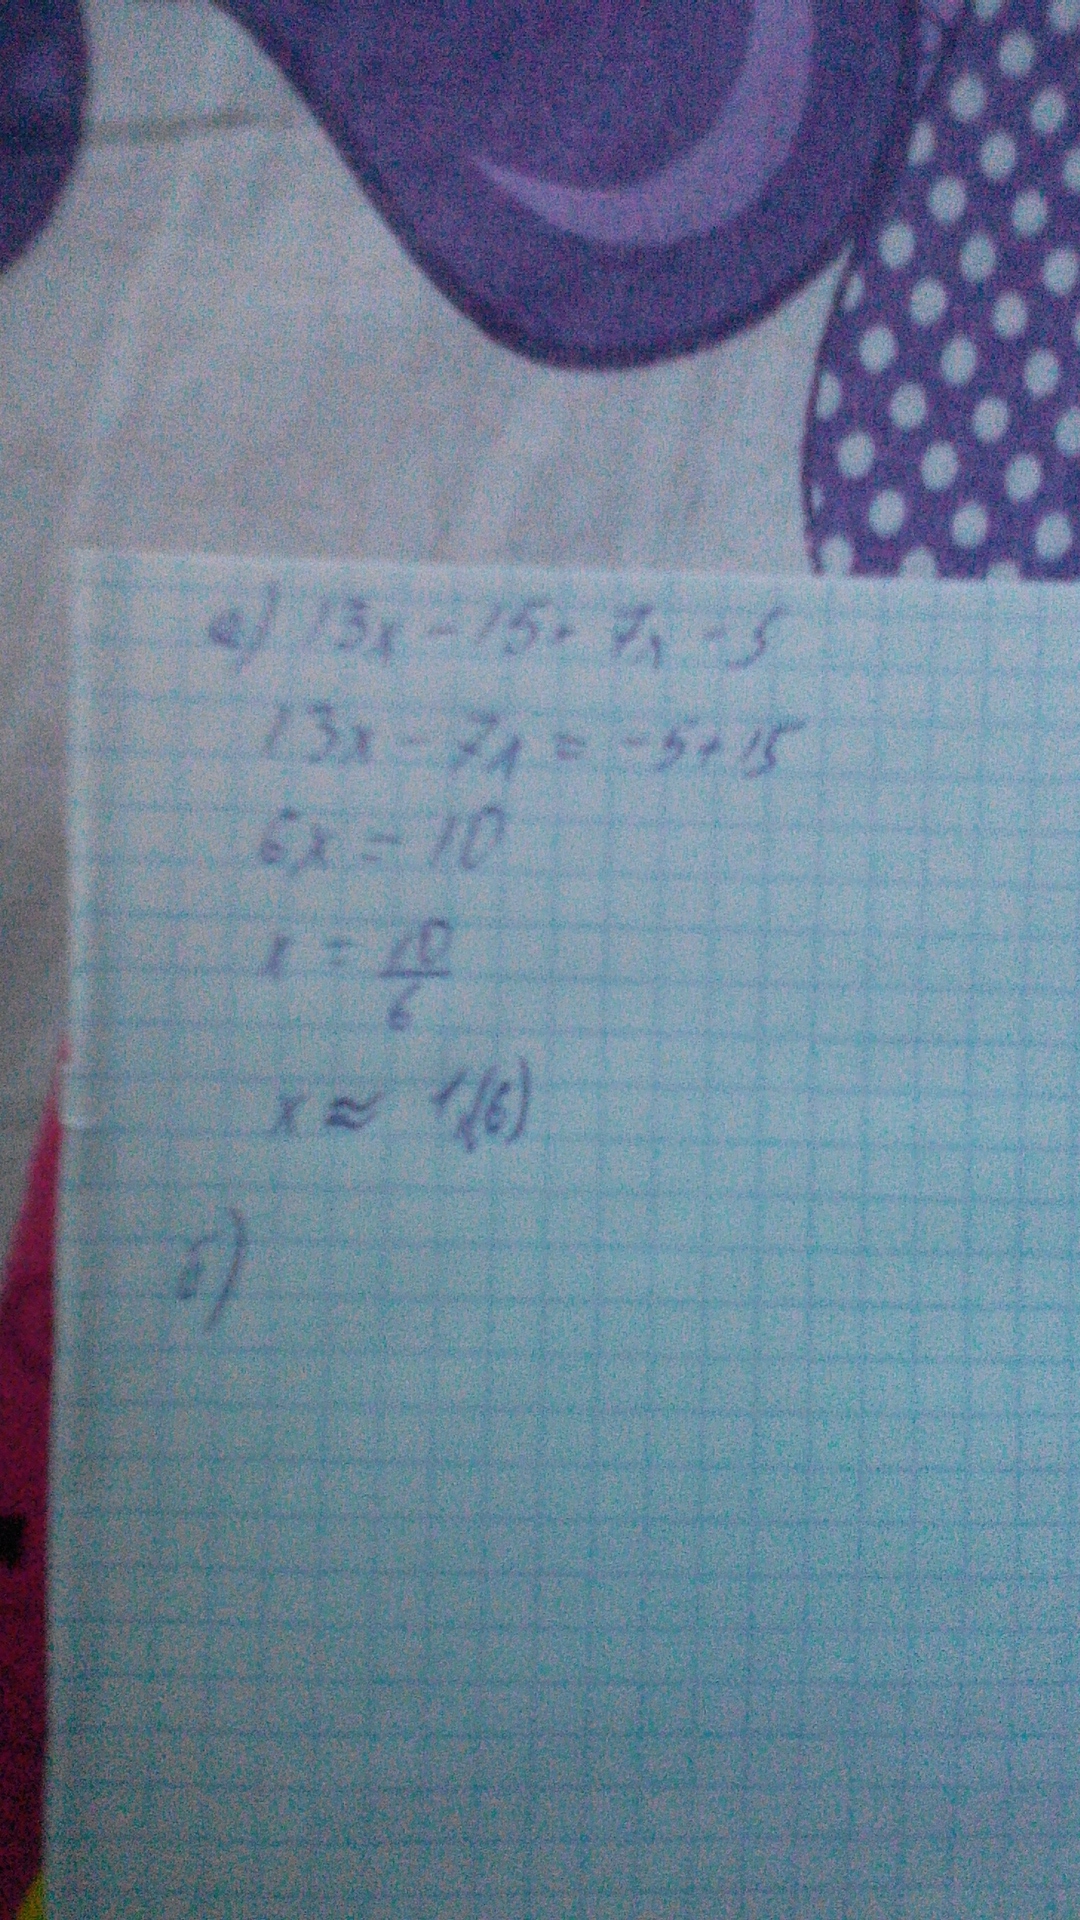 а) 13x - 15 = 7x - 5
13x - 7x = -5+15
6x = 10
x = 10/6
x ≈ 1,(6)
б)